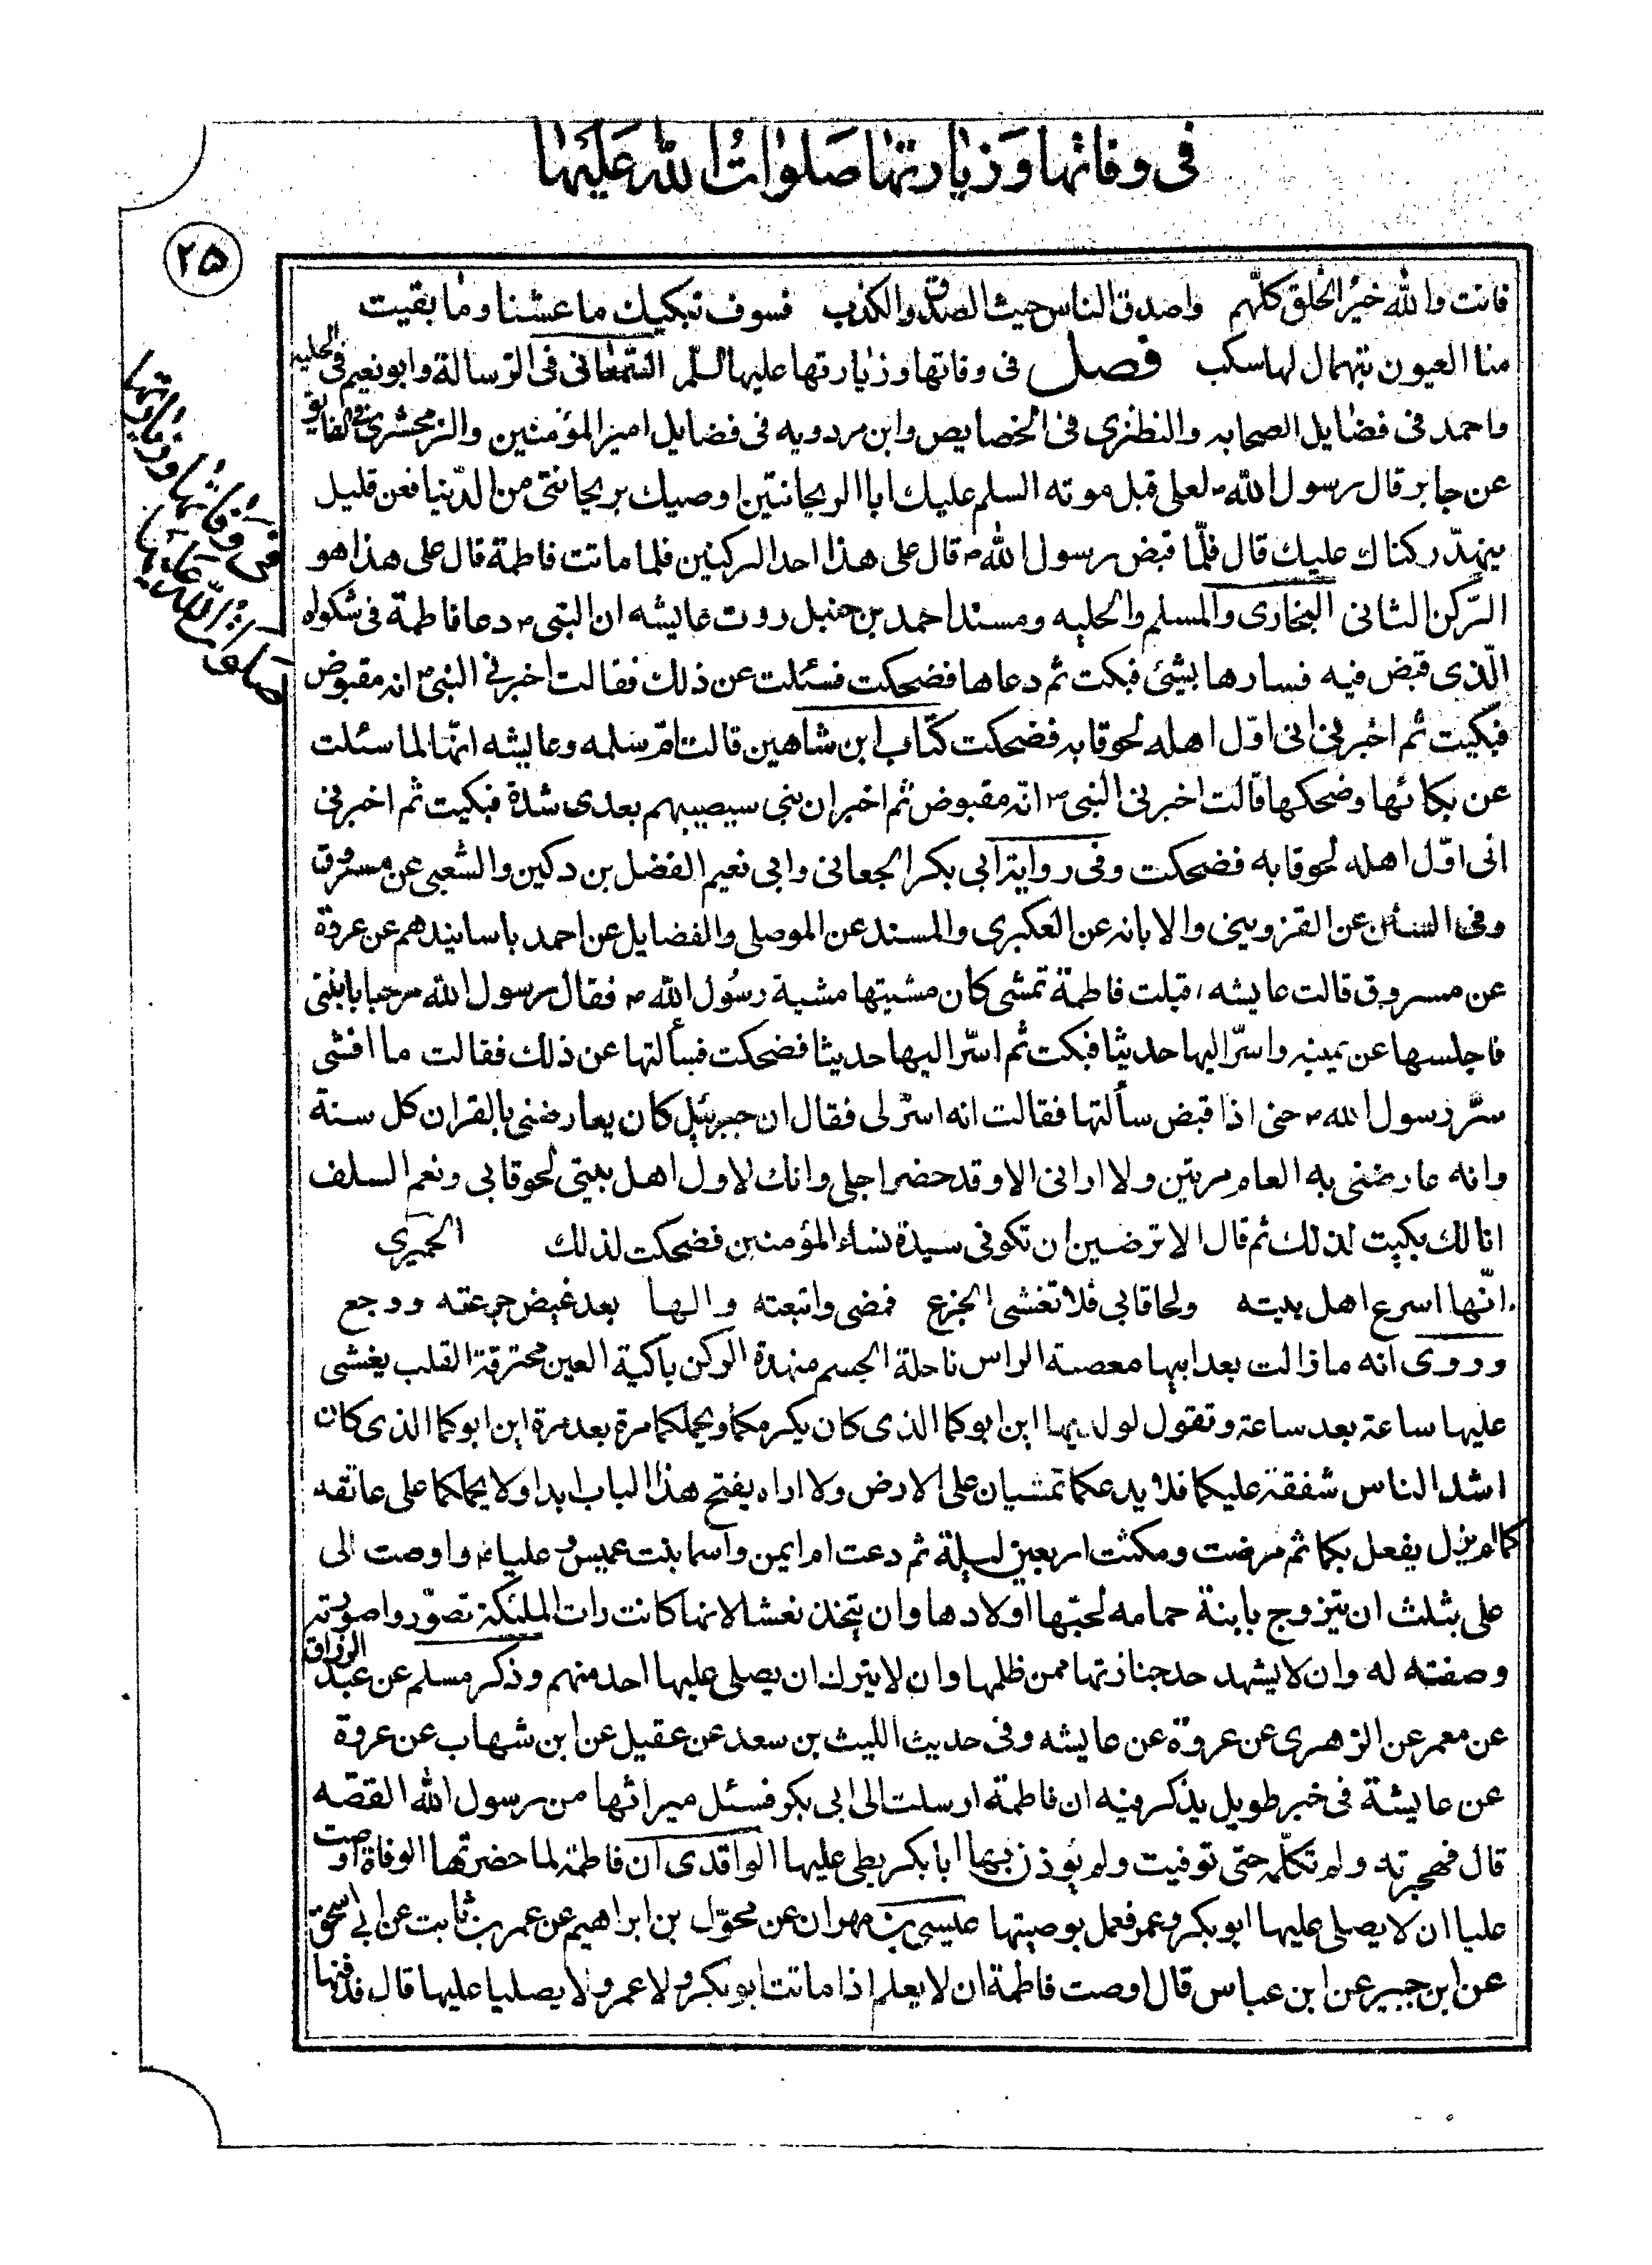 في وفاتها وزيارتها صلوات الله عليها
٢٥
فانت والله خير الخلق كلهم واصدق الناس حيث الصدق والكذب فسوف نبكيك ما عشنا وما بقيت
منا العيون بتهمال لها سكب فصل في وفاتها وزيارتها عليها السلم السمعاني في الرسالة وابو نعيم في الحليه
واحمد في فضايل الصحابه والنطنزي في الخصايص وابن مردويه في فضايل امير المؤمنين والزمخشري في الفايق
عن جابر قال رسول الله ص لعلي قبل موته السلم عليك ابا الريحانتين اوصيك بريحانتي من الدنيا فعن قليل
ينهدّ ركناك عليك قال فلمّا قبض رسول الله ص قال علي هذا احد الركنين فلما ماتت فاطمة قال علي هذا هو
الرّكن الثاني البخاري والمسلم والحليه ومسند احمد بن حنبل روت عايشه ان النبي ص دعا فاطمة في شكواه
الّذي قبض فيه فسارها بشيئ فبكت ثم دعاها فضحكت فسئلت عن ذلك فقالت اخبرني النبي ص انه مقبوض
فبكيت ثم اخبرني اني اوّل اهله لحوقا به فضحكت كتاب ابن شاهين قالت امّ سلمه وعايشه انها لما سئلت
عن بكائها وضحكها قالت اخبرني النبي ص انه مقبوض ثم اخبر ان بني سيصيبهم بعدي شدة فبكيت ثم اخبرني
اني اوّل اهله لحوقا به فضحكت وفي رواية ابي بكر الجعابي وابي نعيم الفضل بن دكين والشعبي عن مسروق
وفي السنن عن القزويني والابانه عن العكبري والمسند عن الموصلي والفضايل عن احمد باسانيدهم عن عروة
عن مسروق قالت عايشه اقبلت فاطمة تمشي كان مشيتها مشية رسول الله ص فقال رسول الله مرحبا بابنتي
فاجلسها عن يمينه واسرّ اليها حديثا فبكت ثم اسرّ اليها حديثا فضحكت فسألتها عن ذلك فقالت ما افشي
سرّ رسول الله ص حتى اذا قبض سألتها فقالت انه اسرّ لي فقال ان جبرئيل كان يعارضني بالقران كل سنة
وانه عارضني به العام مرتين ولا اراني الا وقد حضر اجلي وانك لاول اهل بيتي لحوقا بي ونعم السلف
انا لك بكيت لذلك ثم قال الا ترضين ان تكوني سيدة نساء المؤمنين فضحكت لذلك الحميري
انّها اسرع اهل بيته ولحاقا بي فلا تغشي الجزع فمضى واتبعته والها بعد غيض جرعته ووجع
وروى انه ما زالت بعد ابيها معصبة الراس ناحلة الجسم منهدة الركن باكية العين محترقة القلب يغشى
عليها ساعة بعد ساعة وتقول لولديها اين ابوكما الذي كان يكرمكما ويحملكما مرة بعد مرة اين ابوكما الذي كان
اشد الناس شفقة عليكما فلا يدعكما تمشيان على الارض ولا اراه يفتح هذا الباب ابدا ولا يحملكما على عاتقه
كما لم يزل يفعل بكما ثم مرضت ومكثت اربعين ليلة ثم دعت ام ايمن واسما بنت عميس وعليا ع واوصت الى
علي بثلث ان يتزوج بابنة حمامه لحبها اولادها وان يتخذ نعشا لانها كانت رات الملئكة تصوّروا صورته
وصفته له وان لا يشهد حد جنازتها ممن ظلمها وان لا يترك ان يصلي عليها احد منهم وذكر مسلم عن عبد الرزاق
عن معمر عن الزهري عن عروة عن عايشه وفي حديث الليث بن سعد عن عقيل عن ابن شهاب عن عروة
عن عايشة في خبر طويل يذكر فيه ان فاطمة ارسلت الى ابي بكر فسئل ميراثها من رسول الله القصه
قال فهجرته ولم تكلّمه حتى توفيت ولم يؤذن بها ابا بكر يصلي عليها الواقدي ان فاطمة لما حضرتها الوفاة اوصت
عليا ان لا يصلي عليها ابو بكر وعمر فعمل بوصيتها عيسى بن مهران عن مخوّل بن ابراهيم عن عمر بن ثابت عن ابي اسحق
عن ابن جبير عن ابن عباس قال اوصت فاطمة ان لا يعلم اذا ماتت ابو بكر ولا عمر ولا يصليا عليها قال فدفنها
في وفاتها وزيارتها
صلوات الله عليها